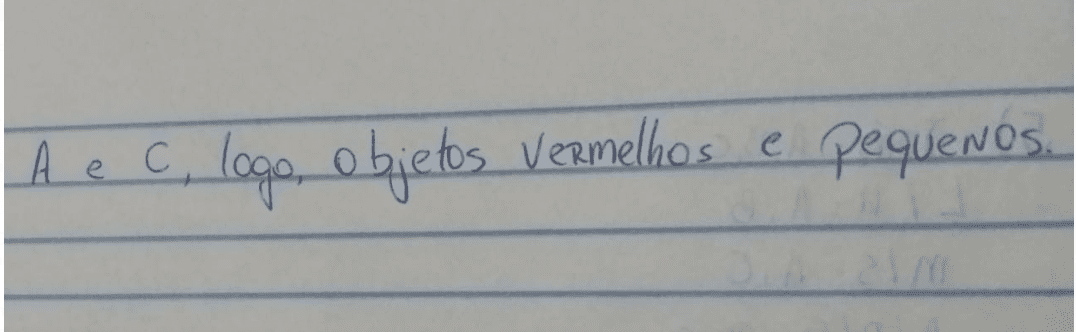 A e C, logo, objetos vermelhos e pequenos.